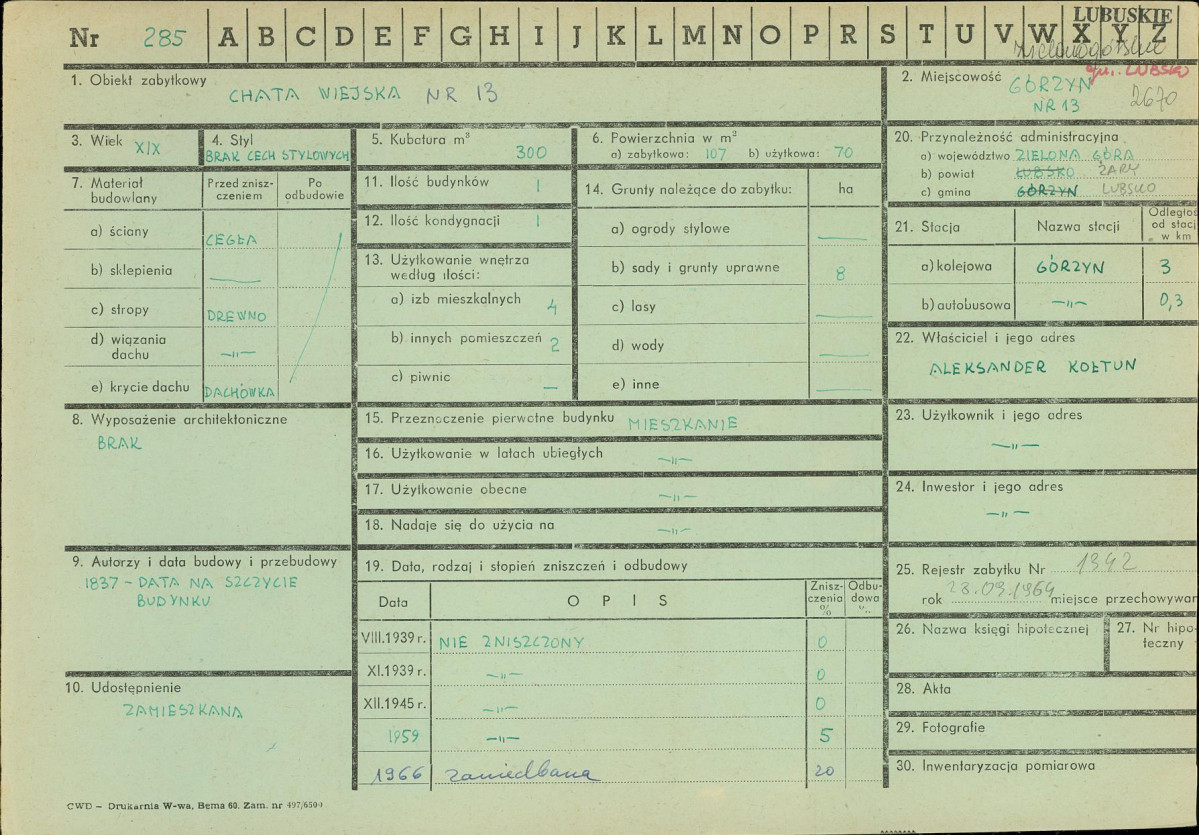 LUBUSKIE
Nr 285 A B C D E F G H I J K L M N O P R S T U V W X Y Z
Zielonogórskie
1. Obiekt zabytkowy
CHATA WIEJSKA NR 13
2. Miejscowość gm. LUBSKO
GÓRZYN
NR 13 2670
3. Wiek XIX
4. Styl
BRAK CECH STYLOWYCH
5. Kubatura m³
300
6. Powierzchnia w m²
a) zabytkowa: 107 b) użytkowa: 70
20. Przynależność administracyjna
a) województwo ZIELONA GÓRA
b) powiat LUBSKO ŻARY
c) gmina GÓRZYN LUBSKO
7. Materiał budowlany
Przed znisz-
czeniem
Po
odbudowie
a) ściany CEGŁA
b) sklepienia —
c) stropy DREWNO
d) wiązania
dachu —"—
e) krycie dachu DACHÓWKA
11. Ilość budynków 1
12. Ilość kondygnacji 1
13. Użytkowanie wnętrza
według ilości:
a) izb mieszkalnych 4
b) innych pomieszczeń 2
c) piwnic —
14. Grunty należące do zabytku: ha
a) ogrody stylowe —
b) sady i grunty uprawne 8
c) lasy —
d) wody —
e) inne —
21. Stacja Nazwa stacji Odległoś
od stacj
w km
a) kolejowa GÓRZYN 3
b) autobusowa —"— 0,3
22. Właściciel i jego adres
ALEKSANDER KOŁTUN
8. Wyposażenie architektoniczne
BRAK
15. Przeznaczenie pierwotne budynku MIESZKANIE
16. Użytkowanie w latach ubiegłych —"—
17. Użytkowanie obecne —"—
18. Nadaje się do użycia na —"—
23. Użytkownik i jego adres
—"—
24. Inwestor i jego adres
—"—
9. Autorzy i data budowy i przebudowy
1837 – DATA NA SZCZYCIE
BUDYNKU
19. Data, rodzaj i stopień zniszczeń i odbudowy
Data OPIS Znisz-
czenia
%
Odbu-
dowa
VIII.1939 r. NIE ZNISZCZONY 0
XI.1939 r. —"— 0
XII.1945 r. —"— 0
1959 —"— 5
1966 zaniedbana 20
10. Udostępnienie
ZAMIESZKANA
25. Rejestr zabytku Nr 1342
rok 28.09.1964 miejsce przechowywan
26. Nazwa księgi hipotecznej
27. Nr hipo-
teczny
28. Akta
29. Fotografie
30. Inwentaryzacja pomiarowa
CWD – Drukarnia W-wa, Bema 60. Zam. nr 497/6500